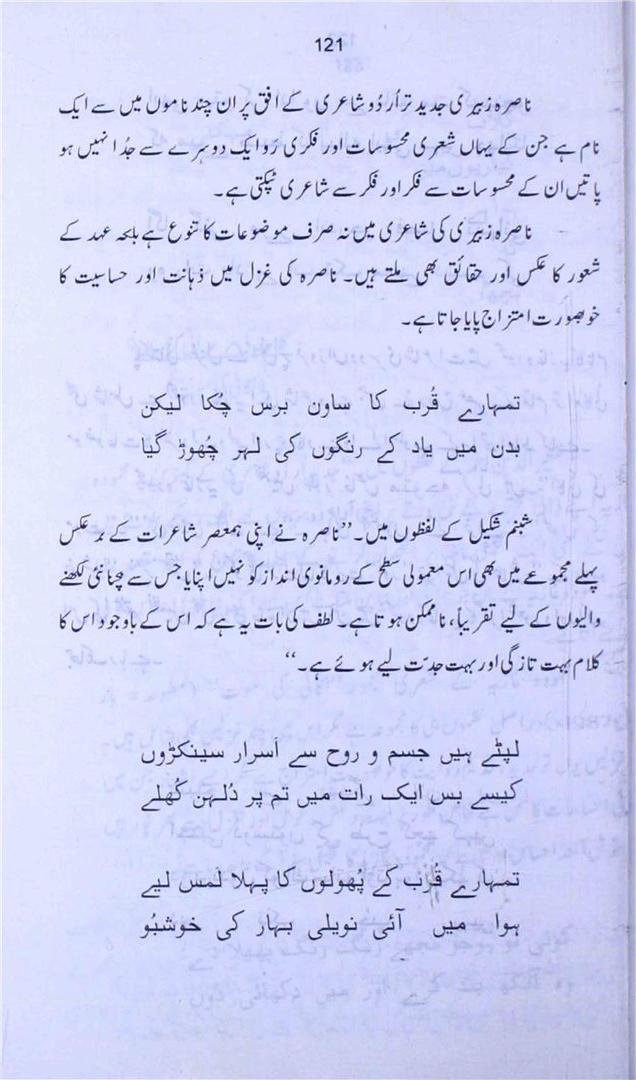 121
ناصرہ زبیری جدید تر اُردُو شاعری کے افق پر ان چند ناموں میں سے ایک
نام ہے جن کے یہاں شعری محسوسات اور فکری رَو ایک دوسرے سے جدُا نہیں ہو
پاتیں ان کے محسوسات سے فکر اور فکر سے شاعری ٹپکتی ہے۔
ناصرہ زبیری کی شاعری میں نہ صرف موضوعات کا تنوع ہے بلکہ عہد کے
شعور کا عکس اور حقائق بھی ملتے ہیں۔ ناصرہ کی غزل میں ذہانت اور حساسیت کا
خوبصورت امتزاج پایا جاتا ہے۔
تمہارے قُرب کا ساون برس چُکا لیکن
بدن میں یاد کے رنگوں کی لہر چُھوڑ گیا
شبنم شکیل کے لفظوں میں۔ ’’ناصرہ نے اپنی ہمعصر شاعرات کے بر عکس
پہلے مجموعے میں بھی اس معمولی سطح کے رومانوی انداز کو نہیں اپنایا جس سے بچنا نئی لکھنے
والیوں کے لیے تقریباً، ناممکن ہوتا ہے۔ لطف کی بات یہ ہے کہ اس کے باوجود اس کا
کلام بہت تازگی اور بہت جدّت لیے ہوئے ہے۔‘‘
لپٹے ہیں جسم و روح سے اَسرار سینکڑوں
کیسے بس ایک رات میں تم پر دُلہن کُھلے
تمہارے قُرب کے پُھولوں کا پہلا لمس لیے
ہوا میں آئی نویلی بہار کی خوشبُو